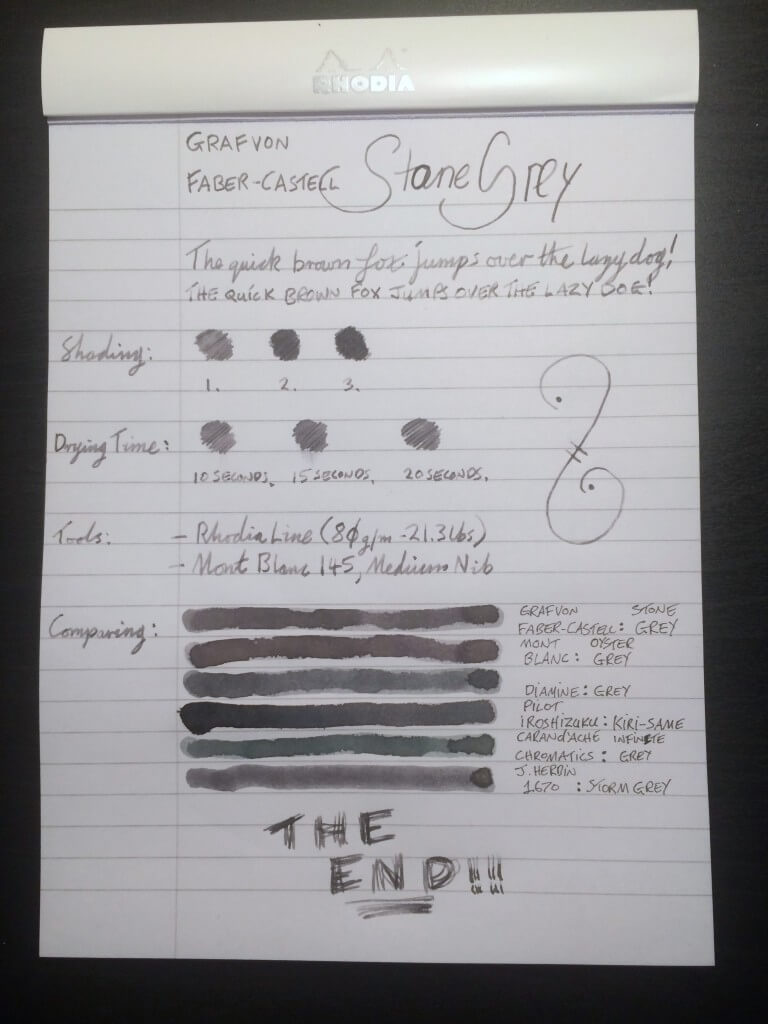 RHODIA
GRAF VON
FABER-CASTELL Stone Grey
The quick brown fox jumps over the lazy dog!
THE QUICK BROWN FOX JUMPS OVER THE LAZY DOG!
Shading:
1. 2. 3.
Drying Time:
10 SECONDS. 15 SECONDS. 20 SECONDS.
Tools: - Rhodia Line (80g/m - 21.3lbs)
- Mont Blanc 145, Medium Nib
Comparing:
GRAF VON STONE
FABER-CASTELL: GREY
MONT OYSTER
BLANC: GREY
DIAMINE: GREY
PILOT
IROSHIZUKU: KIRI-SAME
CARAN d'ACHE INFINITE
CHROMATICS: GREY
J. HERBIN
1670 : STORM GREY
THE
END!!!